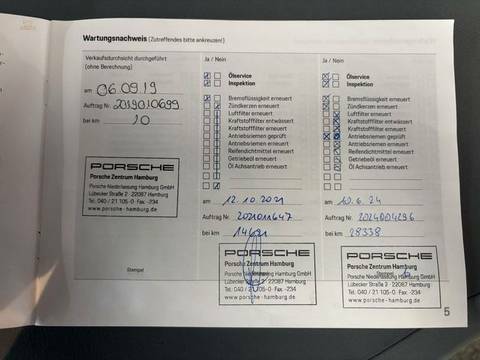 Wartungsnachweis (Zutreffendes bitte ankreuzen!)
Verkaufsdurchsicht durchgeführt
(ohne Berechnung)
am 06.09.19
Auftrag Nr. 2019010699
bei km 10
PORSCHE
Porsche Zentrum Hamburg
Porsche Niederlassung Hamburg GmbH
Lübecker Straße 2 · 22087 Hamburg
Tel. 040 / 21 105-0 · Fax -234
www.porsche-hamburg.de
Stempel
Ja / Nein
Ölservice
Inspektion
Bremsflüssigkeit erneuert
Zündkerzen erneuert
Luftfilter erneuert
Kraftstofffilter entwässert
Kraftstofffilter erneuert
Antriebsriemen geprüft
Antriebsriemen erneuert
Reifendichtmittel erneuert
Getriebeöl erneuert
Öl Achsantrieb erneuert
am 12.10.2021
Auftrag Nr. 2021011647
bei km
PORSCHE
Porsche Zentrum Hamburg
Porsche Niederlassung Hamburg GmbH
Lübecker Straße 2 · 22087 Hamburg
Tel. 040 / 21 105-0 · Fax -234
www.porsche-hamburg.de
Ja / Nein
Ölservice
Inspektion
Bremsflüssigkeit erneuert
Zündkerzen erneuert
Luftfilter erneuert
Kraftstofffilter entwässert
Kraftstofffilter erneuert
Antriebsriemen geprüft
Antriebsriemen erneuert
Reifendichtmittel erneuert
Getriebeöl erneuert
Öl Achsantrieb erneuert
am 10.6.24
Auftrag Nr. 2024004296
bei km 28338
PORSCHE
Porsche Zentrum Hamburg
Stempel
Porsche Niederlassung Hamburg GmbH
Lübecker Straße 2 · 22087 Hamburg
Tel. 040 / 21 105-0 · Fax -234
www.porsche-hamburg.de
5